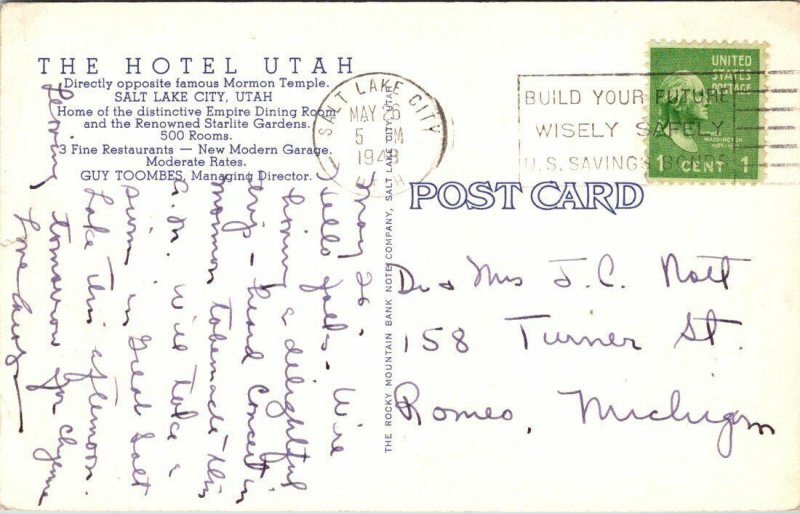 THE HOTEL UTAH
Directly opposite famous Mormon Temple.
SALT LAKE CITY, UTAH
Home of the distinctive Empire Dining Room
and the Renowned Starlite Gardens.
500 Rooms.
3 Fine Restaurants — New Modern Garage.
Moderate Rates.
GUY TOOMBES, Managing Director.
SALT LAKE CITY, UTAH
MAY 26
5 PM
1948
BUILD YOUR FUTURE
WISELY SAFELY
U.S. SAVINGS BONDS
UNITED
STATES
POSTAGE
WASHINGTON
1 CENT 1
POST CARD
THE ROCKY MOUNTAIN BANK NOTE COMPANY, SALT LAKE CITY, UTAH
Dr & Mrs J. C. Nott
158 Turner St.
Romeo, Michigan
May 26 -
Hello folks - We're
having a delightful
trip - heard concert in
mormon tabernacle this
a.m. Will take a
swim in Great Salt
Lake this afternoon.
Leaving tomorrow for Cheyenne
Love